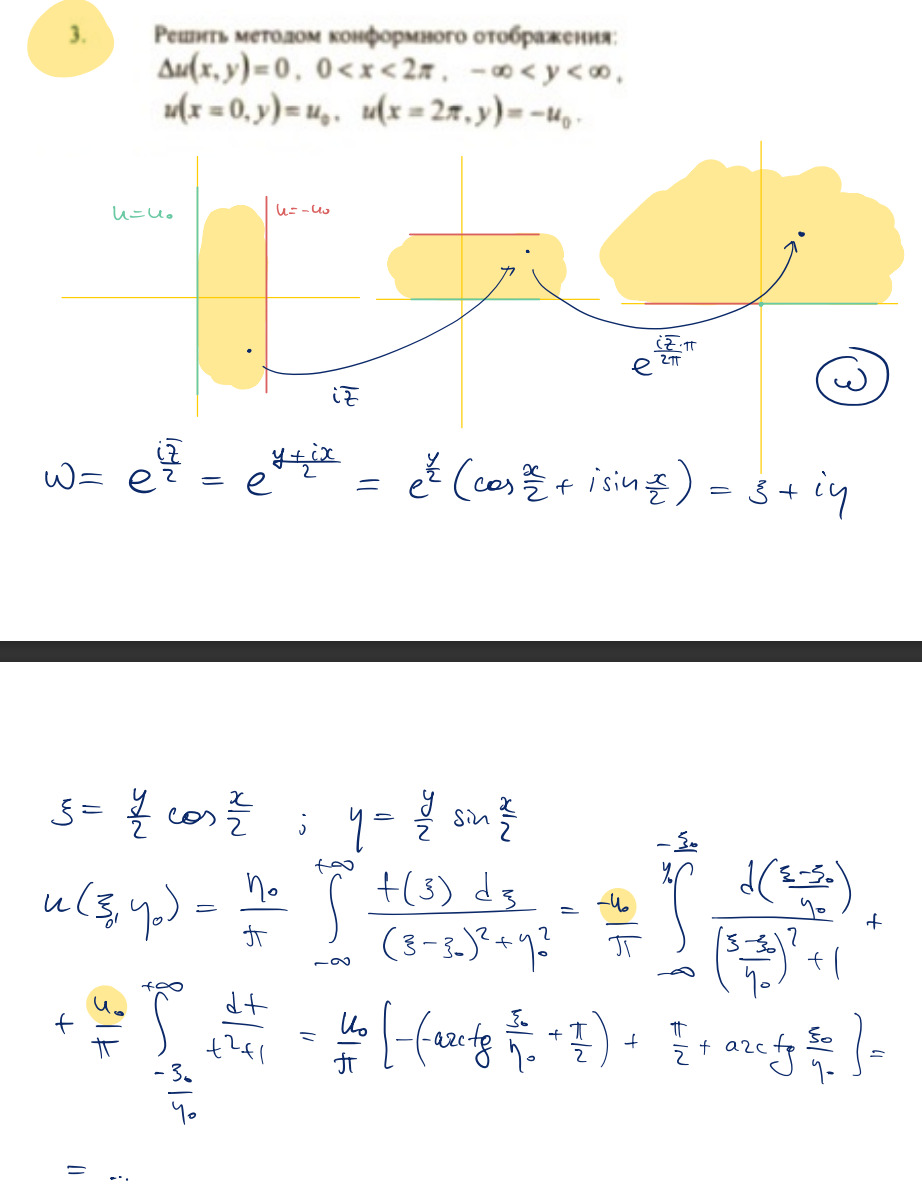 3. Решить методом конформного отображения:
Δu(x, y) = 0, 0 < x < 2π, -∞ < y < ∞,
u(x = 0, y) = u₀, u(x = 2π, y) = -u₀.
u=u₀ u=-u₀
iz̅ e^(iz̅·π/2π) ω
ω = e^(iz̅/2) = e^((y+ix)/2) = e^(y/2) (cos x/2 + i sin x/2) = ξ + iη
ξ = y/2 cos x/2 ; η = y/2 sin x/2
u(ξ₀, η₀) = η₀/π ∫_(-∞)^(+∞) f(ξ) dξ / ((ξ-ξ₀)² + η₀²) = -u₀/π ∫_(-∞)^(-ξ₀/η₀) d((ξ-ξ₀)/η₀) / (((ξ-ξ₀)/η₀)² + 1) +
+ u₀/π ∫_(-ξ₀/η₀)^(+∞) dt/(t²+1) = u₀/π [-(-arctg ξ₀/η₀ + π/2) + π/2 + arctg ξ₀/η₀] =
= ...